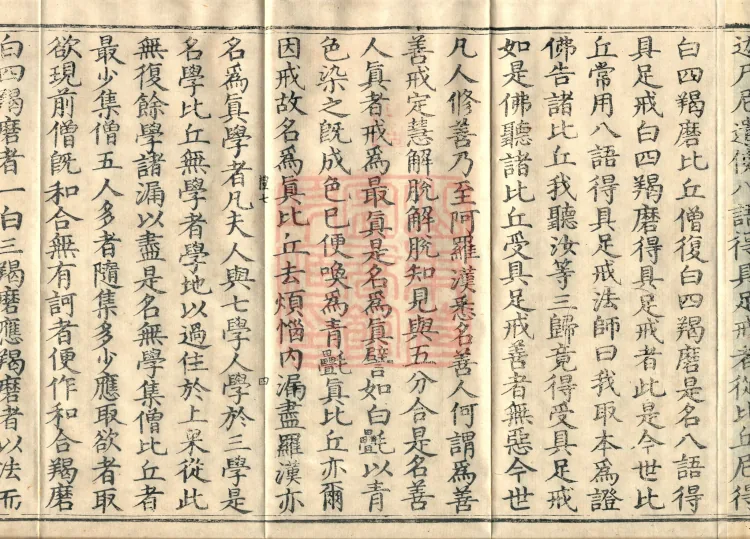 遣使八語得具足戒者從比丘尼得
白四羯磨比丘僧復白四羯磨是名八語得
具足戒白四羯磨得具足戒者此是今世比
丘常用八語得具足戒法師曰我取本爲證
佛告諸比丘我聽汝等三歸竟得受具足戒
如是佛聽諸比丘受具足戒善者無惡今世
凡人修善乃至阿羅漢悉名善人何謂爲善
善戒定慧解脫解脫知見與五分合是名善
人眞者戒爲最眞是名爲眞譬如白氎以青
色染之旣成色已便喚爲青氎眞比丘亦爾
因戒故名爲眞比丘去煩惱內漏盡羅漢亦
七 四
名爲眞學者凡夫人與七學人學於三學是
名學比丘無學者學地以過住於上果從此
無復餘學諸漏以盡是名無學集僧比丘者
最少集僧五人多者隨集多少應取欲者取
欲現前僧旣和合無有訶者便作和合羯磨
白四羯磨者一白三羯磨應羯磨者以法而